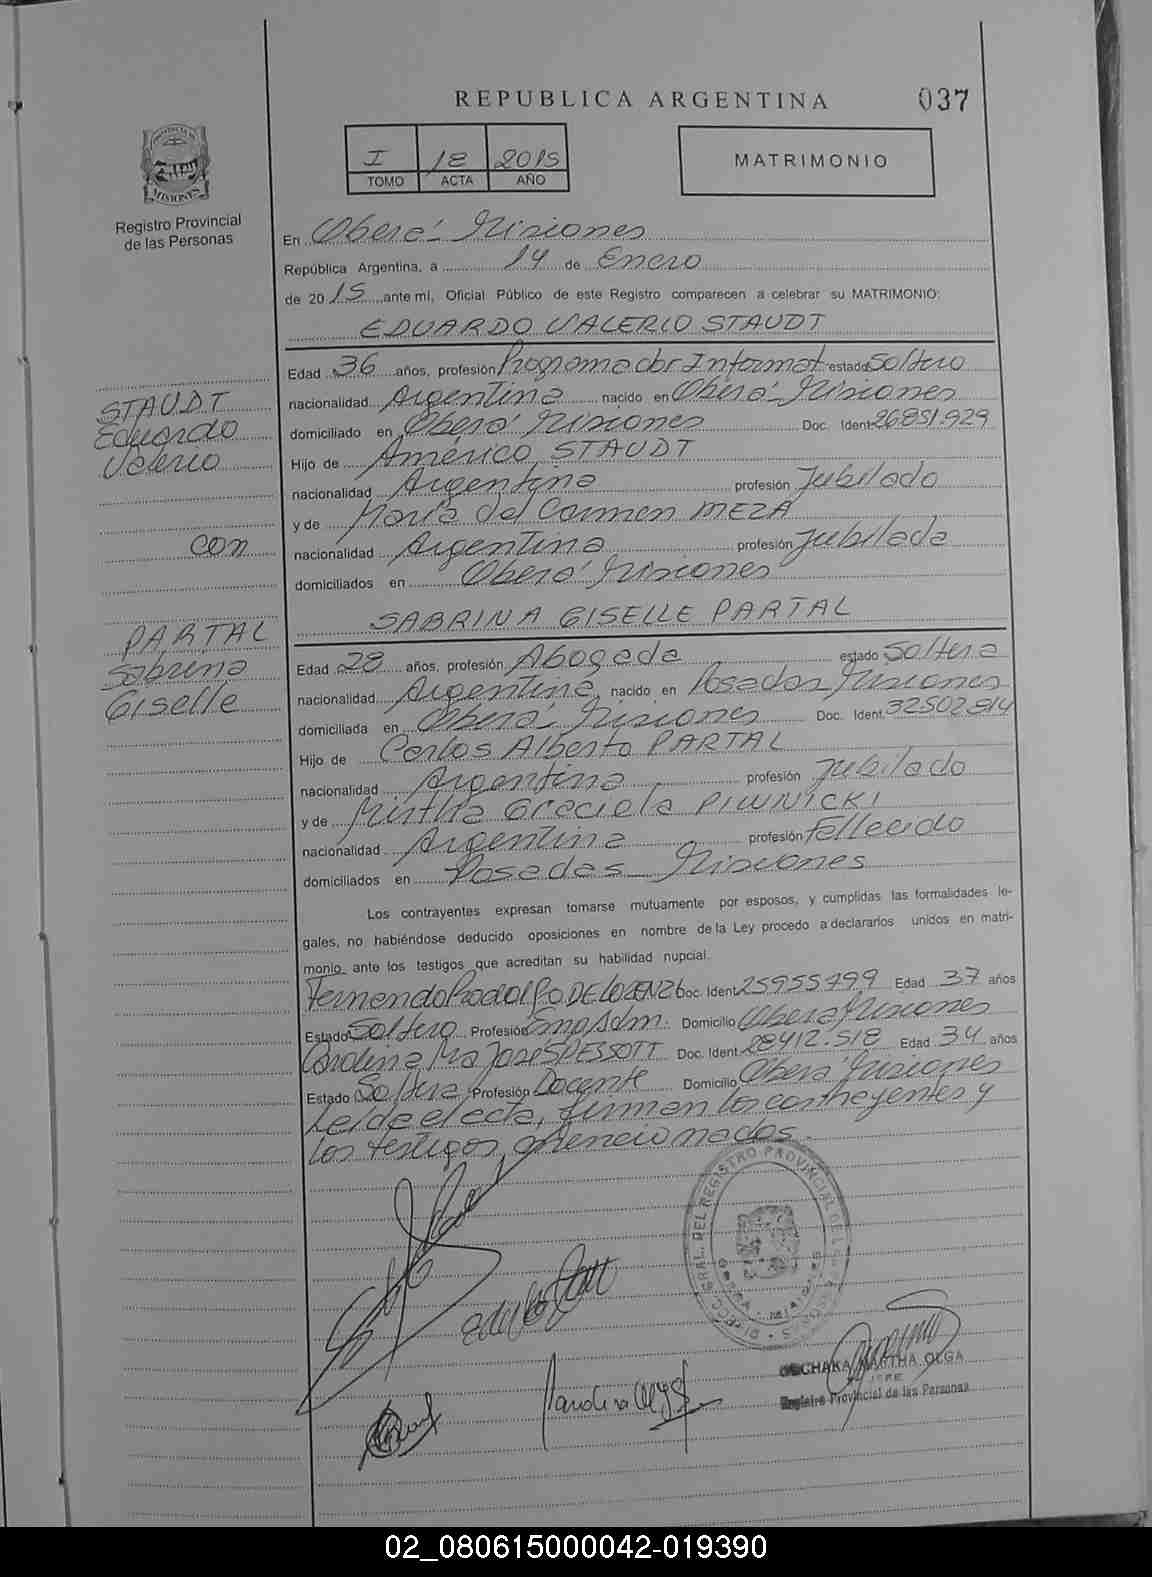 REPUBLICA ARGENTINA
037
I 18 2015
TOMO ACTA AÑO
MATRIMONIO
PROVINCIA DE
MISIONES
Registro Provincial
de las Personas
En Oberá - Misiones
República Argentina, a 14 de Enero
de 2015 ante mi, Oficial Público de este Registro comparecen a celebrar su MATRIMONIO:
EDUARDO VALERIO STAUDT
Edad 36 años, profesión Programador Informat estado Soltero
nacionalidad Argentina nacido en Oberá - Misiones
domiciliado en Oberá Misiones Doc. Ident 26.851.929
Hijo de Américo STAUDT
nacionalidad Argentina profesión Jubilado
y de María del Carmen MEZA
nacionalidad Argentina profesión Jubilada
domiciliados en Oberá Misiones
STAUDT
Eduardo
Valerio
con
PARTAL
Sabrina
Giselle
SABRINA GISELLE PARTAL
Edad 28 años, profesión Abogada estado Soltera
nacionalidad Argentina nacido en Posadas Misiones
domiciliada en Oberá - Misiones Doc. Ident. 32502814
Hijo de Carlos Alberto PARTAL
nacionalidad Argentina profesión Jubilado
y de Mirtha Graciela PIWNICKI
nacionalidad Argentina profesión Fallecido
domiciliados en Posadas Misiones
Los contrayentes expresan tomarse mutuamente por esposos, y cumplidas las formalidades le-
gales, no habiéndose deducido oposiciones en nombre de la Ley procedo a declararlos unidos en matri-
monio ante los testigos que acreditan su habilidad nupcial.
Fernando Rodolfo DE LORENZI Doc. Ident 25955799 Edad 37 años
Estado Soltero Profesión Emp Adm. Domicilio Oberá Misiones
Carolina Ma José SPESSOTT Doc. Ident 28412.518 Edad 34 años
Estado Soltera Profesión Docente Domicilio Oberá Misiones
Leída el acta, firman los contrayentes y
los testigos mencionados.
DIRECC. GRAL. DEL REGISTRO PROVINCIAL DE LAS PERSONAS
MARTHA OLGA
JEFE
Registro Provincial de las Personas
02_080615000042-019390